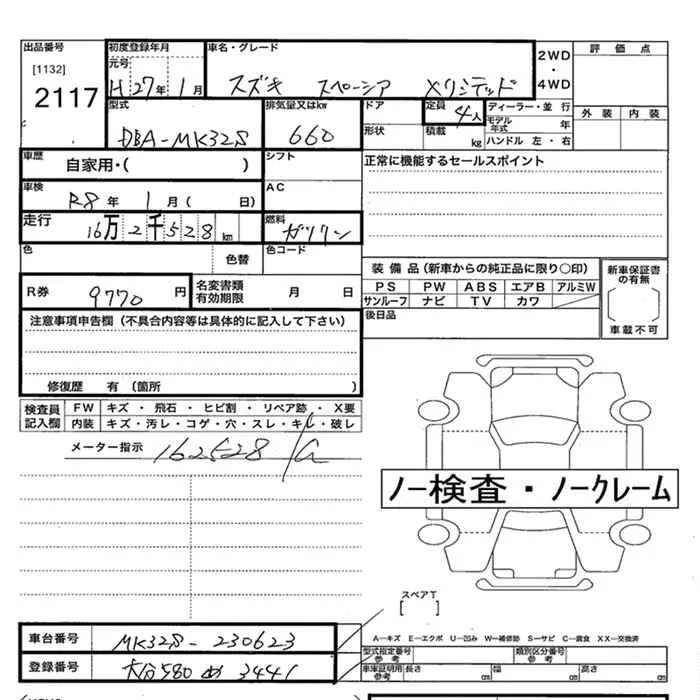 出品番号 初度登録年月 車名・グレード 2WD・4WD 評価点
[1132] 元号
2117 H27年1月 スズキ スペーシア Xリミテッド
型式 排気量又はkw ドア 定員 4人 ディーラー・並行 外装 内装
DBA-MK32S 660 形状 積載 kg モデル年式 年
ハンドル 左・右
車歴 自家用・( ) シフト 正常に機能するセールスポイント
車検 R8年 1月( 日) AC
走行 16万2千528km 燃料 ガソリン
色 色替 色コード
装備品(新車からの純正品に限り○印) 新車保証書の有無
R券 9770円 名変書類有効期限 月 日 PS PW ABS エアB アルミW
サンルーフ ナビ TV カワ
注意事項申告欄(不具合内容等は具体的に記入して下さい) 後日品 車載不可
修復歴 有(箇所 )
検査員記入欄 FW キズ・飛石・ヒビ割・リペア跡・X要
内装 キズ・汚レ・コゲ・穴・スレ・キレ・破レ
メーター指示 162528
ノー検査・ノークレーム
スペアT
[ ]
車台番号 MK32S-230623 A―キズ E―エクボ U―凹み W―補修跡 S―サビ C―腐食 XX―交換済
型式指定番号参考 類別区分番号参考
登録番号 大分580 め 3441 車庫証明用参考 長さ cm 幅 cm 高さ cm